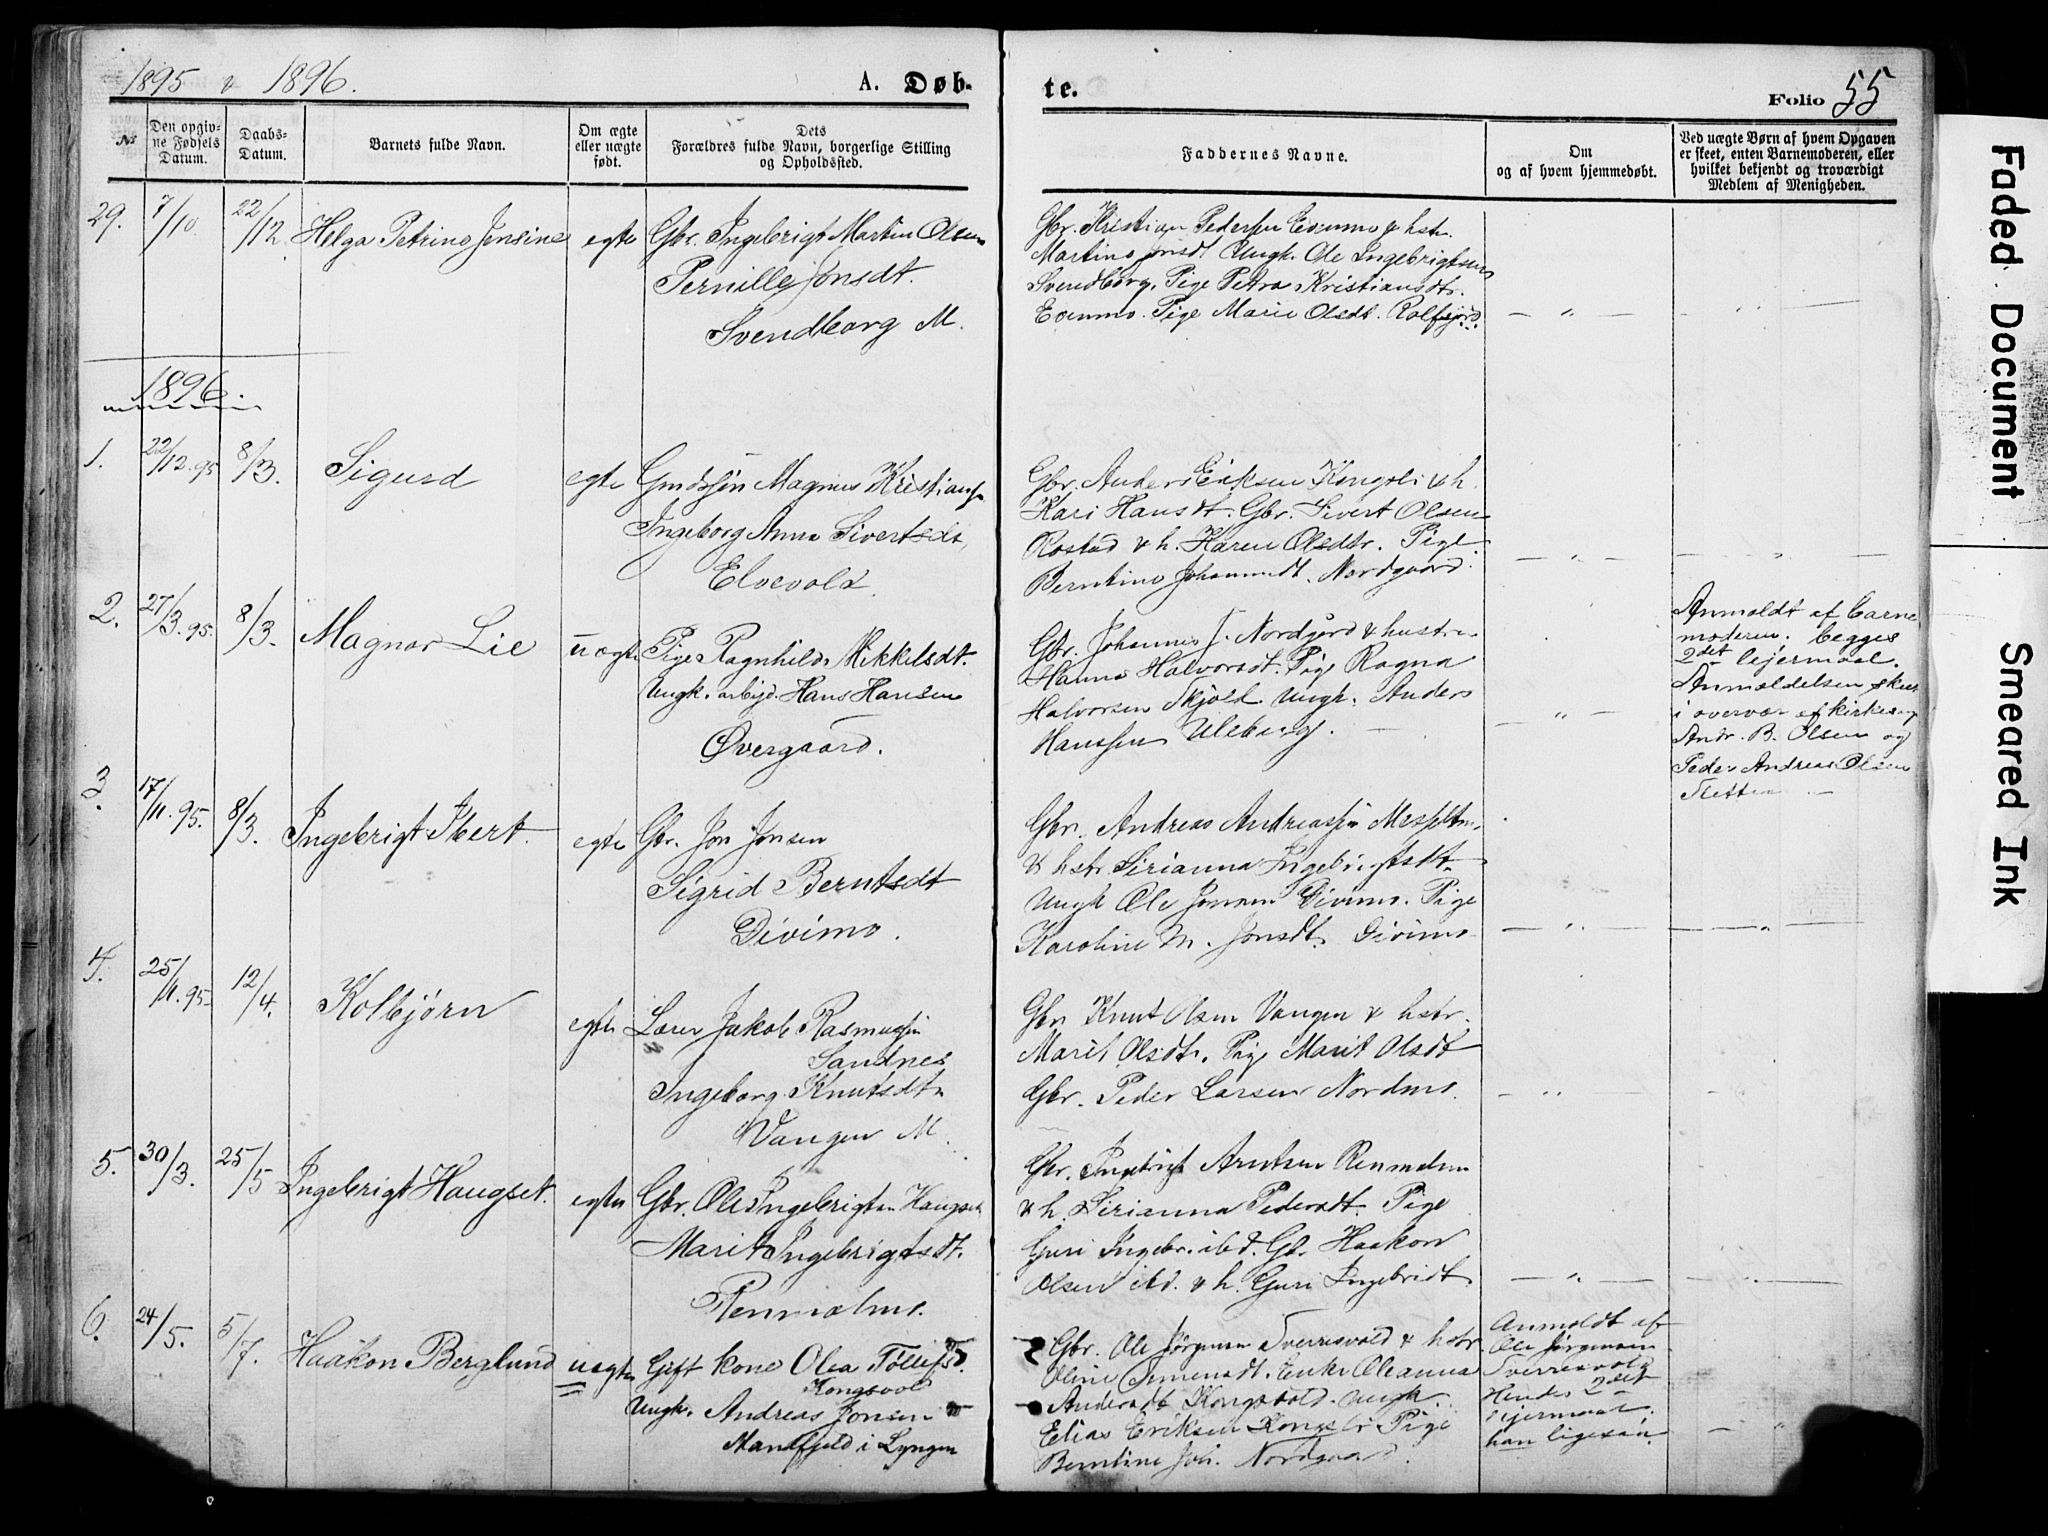 1895 & 1896.
A. Døb-
te.
Folio 55
№
Den opgiv-
ne Fødsels
Datum.
Daabs-
Datum.
Barnets fulde Navn.
Om ægte
eller uægte
født.
Dets
Forældres fulde Navn, borgerlige Stilling
og Opholdssted.
Faddernes Navne.
Om
og af hvem hjemmedøbt.
Ved uægte Børn af hvem Opgaven
er skeet, enten Barnemoderen, eller
hvilket bekjendt og troværdigt
Medlem af Menigheden.
29. 7/10. 22/12. Helga Petrine Jensine egte Gbr. Ingebrigt Martin Olsen
Pernille Jonsdt.
Svendborg M.
Gbr. Kristian Pedersen & hstr.
Martine Jonsdt Ungk. Ole Ingebrigtsen
Svendborg. Pige Petra Kristiansdtr.
Pige Marie Olsdt.
1896.
1. 22/12.95 8/3. Sigurd egte Magnus Kristians
Ingeborg Anna Sivertsdt,
Elvevold.
Gbr. Anders Eriksen Kongsli & h.
Kari Hansdt. Gbr. Sivert Olsen
Rostad & h. Karen Olsdtr. Pige
Berntine Nordgaard.
2. 27/3.95. 8/3. Magnar Lie uægte Pige Ragnhild Mikkelsdt.
Ungk. arbejd. Hans Hansen
Øvergaard.
Gbr. Johannes J. Nordgård & hustru
Hanna Halvorsdt. Pige Ragna
Halvorsen Skjold. Ungk. Anders
Hanssen Uleberg.
Anmeldt af barne
moderen. begges
2det lejermaal.
Anmeldelsen skeet
i overvær af kirkesang
Andr. B. Olsen og
Peder Andreas Olsen
Sletten
3. 17/11.95. 8/3. Ingebrigt Ibert. egte Gbr. Jon Jonsen
Sigrid Berntsdt
Divimo.
Gbr. Andreas Andreassen
& hstr. Sirianna Ingebrigtsdt.
Ungk Ole Jonsen Divimo. Pige
Karoline M. Jonsdt. Divimo
4. 25/11.95. 12/4. Kolbjørn egte Lærer Jakob Rasmussen
Sandnes
Ingeborg Knutsdtr
Vangen M.
Gbr Knut Olsen Vangen & hstr.
Marit Olsdtr. Pige Marit Olsdt
Gbr. Peder Larsen Nordmo.
5. 30/3. 25/5 Ingebrigt Haugset. egte Gbr. Ole Ingebrigtsen Haugset
Marit Ingebrigtsdt.
Gbr. Ingebrigt Arntsen
& h. Sirianna Pedersdt. Pige
Guri Ingebr. ibd. Gb. Haakon
Olsen ibd. & h. Guri Ingebridt
6. 24/5. 5/7. Haakon Berglund uægte Gift kone Olea Tollefsd.
Kongsvold
Ungk. Andreas Jonsen
Mandfjeld i Lyngen
Gbr. Ole Jørgensen Sverresvold & hstr
Oline Simensdt. Enke Oleanna
Andersdt Kongsvold. Ungk.
Elias Eriksen Kongsli Pige
Berntine Joh. Nordgaard.
Anmeldt af
Ole Jørgensen
Sverresvold
Hendes 2det
lejermaal.
han ligesaa.
Faded Document
Smeared Ink